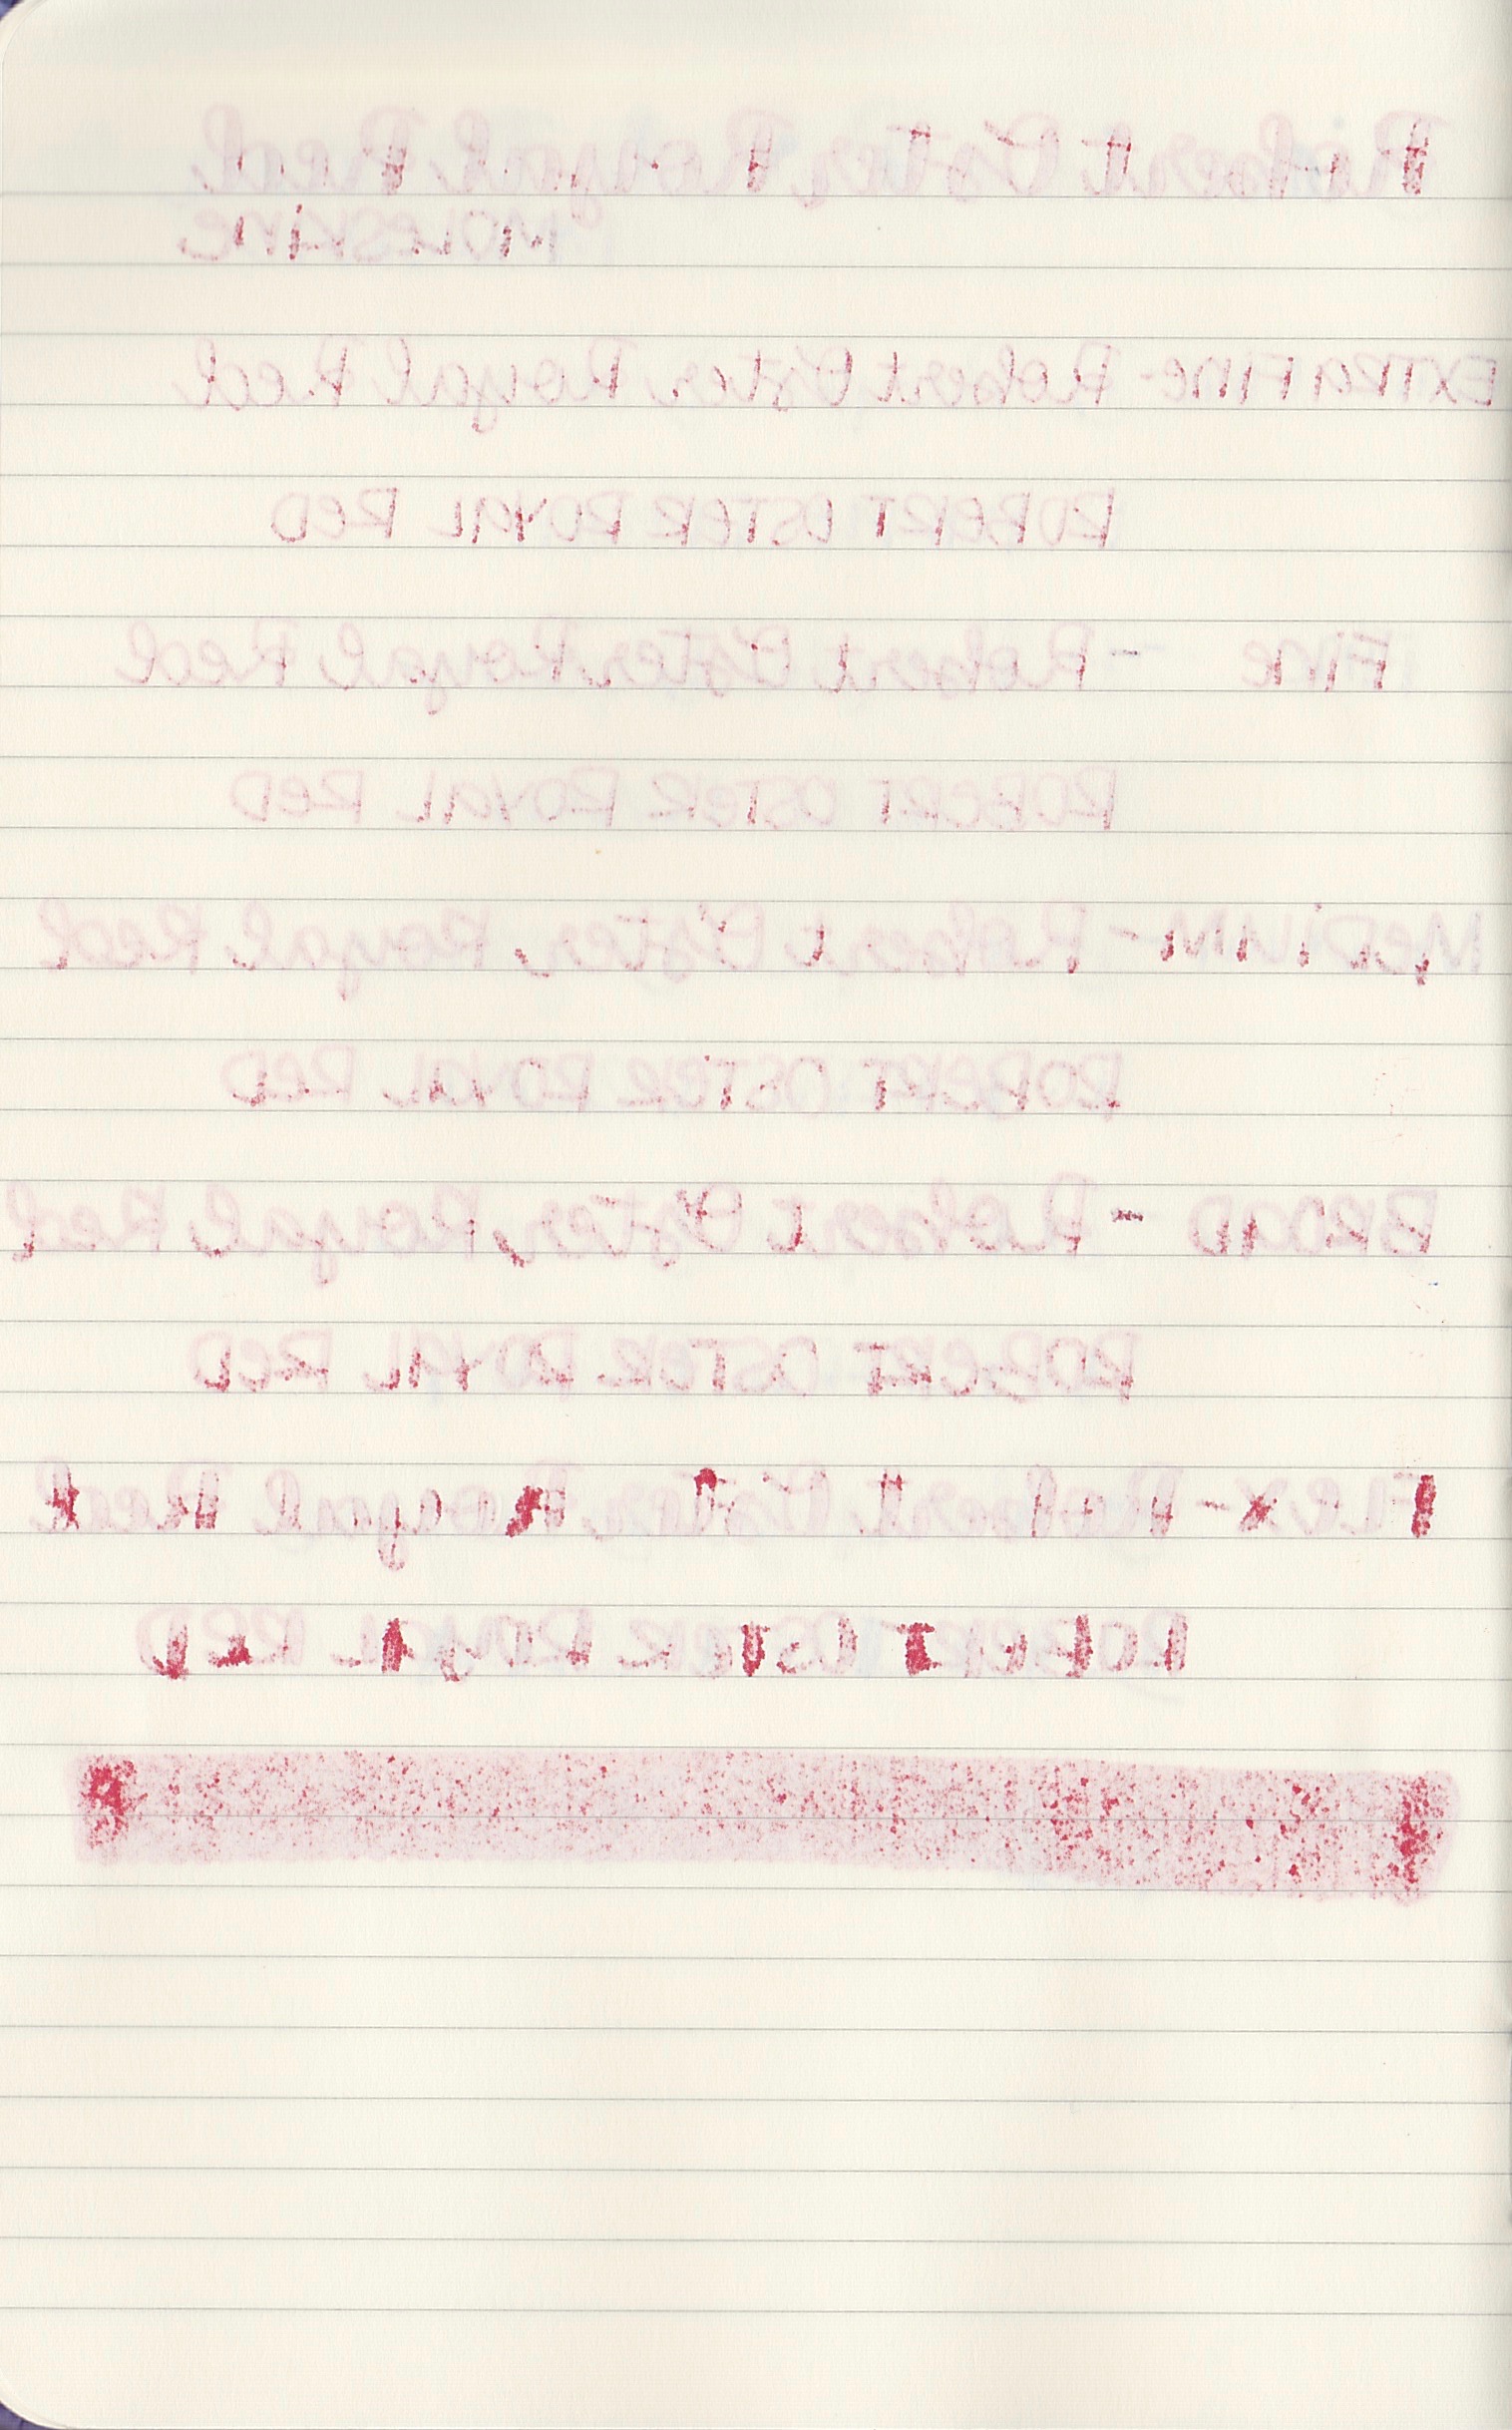 Robert Oster Royal Red
MOLESKINE
EXTRA FINE - Robert Oster Royal Red
ROBERT OSTER ROYAL RED
FINE - Robert Oster Royal Red
ROBERT OSTER ROYAL RED
MEDIUM - Robert Oster Royal Red
ROBERT OSTER ROYAL RED
BROAD - Robert Oster Royal Red
ROBERT OSTER ROYAL RED
FLEX - Robert Oster Royal Red
ROBERT OSTER ROYAL RED